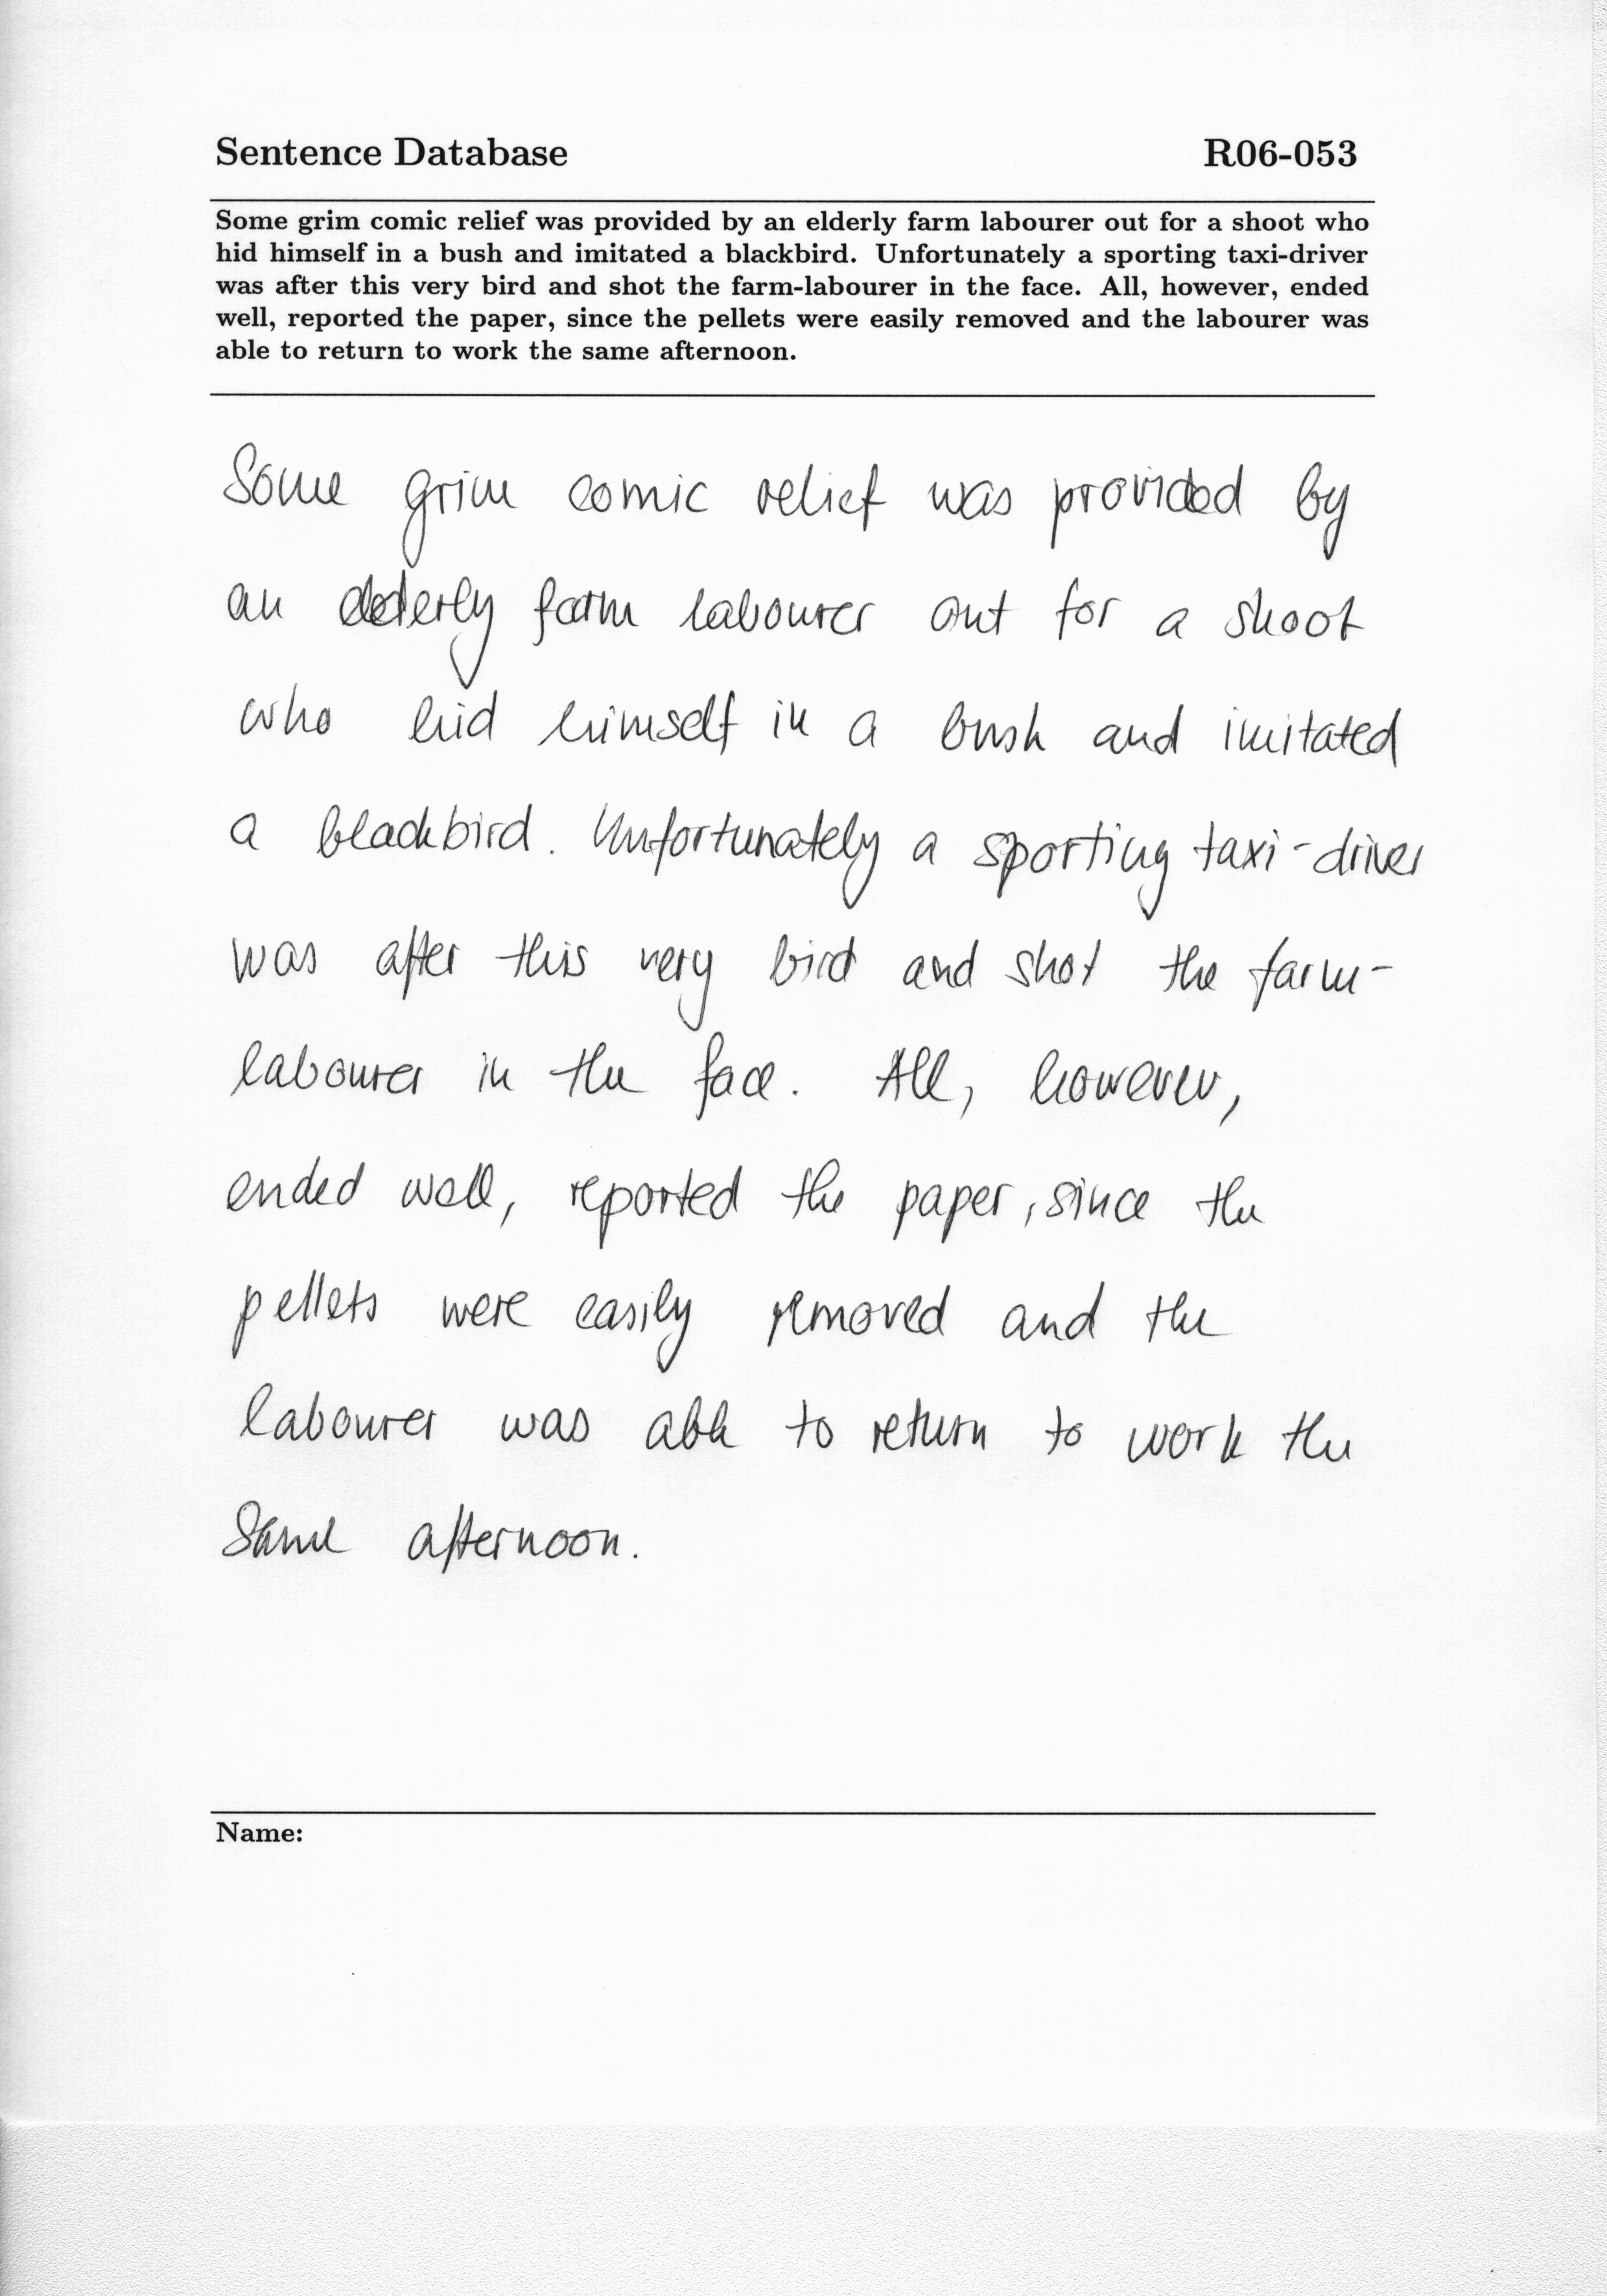 Sentence Database R06-053
Some grim comic relief was provided by an elderly farm labourer out for a shoot who
hid himself in a bush and imitated a blackbird. Unfortunately a sporting taxi-driver
was after this very bird and shot the farm-labourer in the face. All, however, ended
well, reported the paper, since the pellets were easily removed and the labourer was
able to return to work the same afternoon.
Some grim comic relief was provided by
an elderly farm labourer out for a shoot
who hid himself in a bush and imitated
a blackbird. Unfortunately a sporting taxi-driver
was after this very bird and shot the farm-
labourer in the face. All, however,
ended well, reported the paper, since the
pellets were easily removed and the
labourer was able to return to work the
same afternoon.
Name: